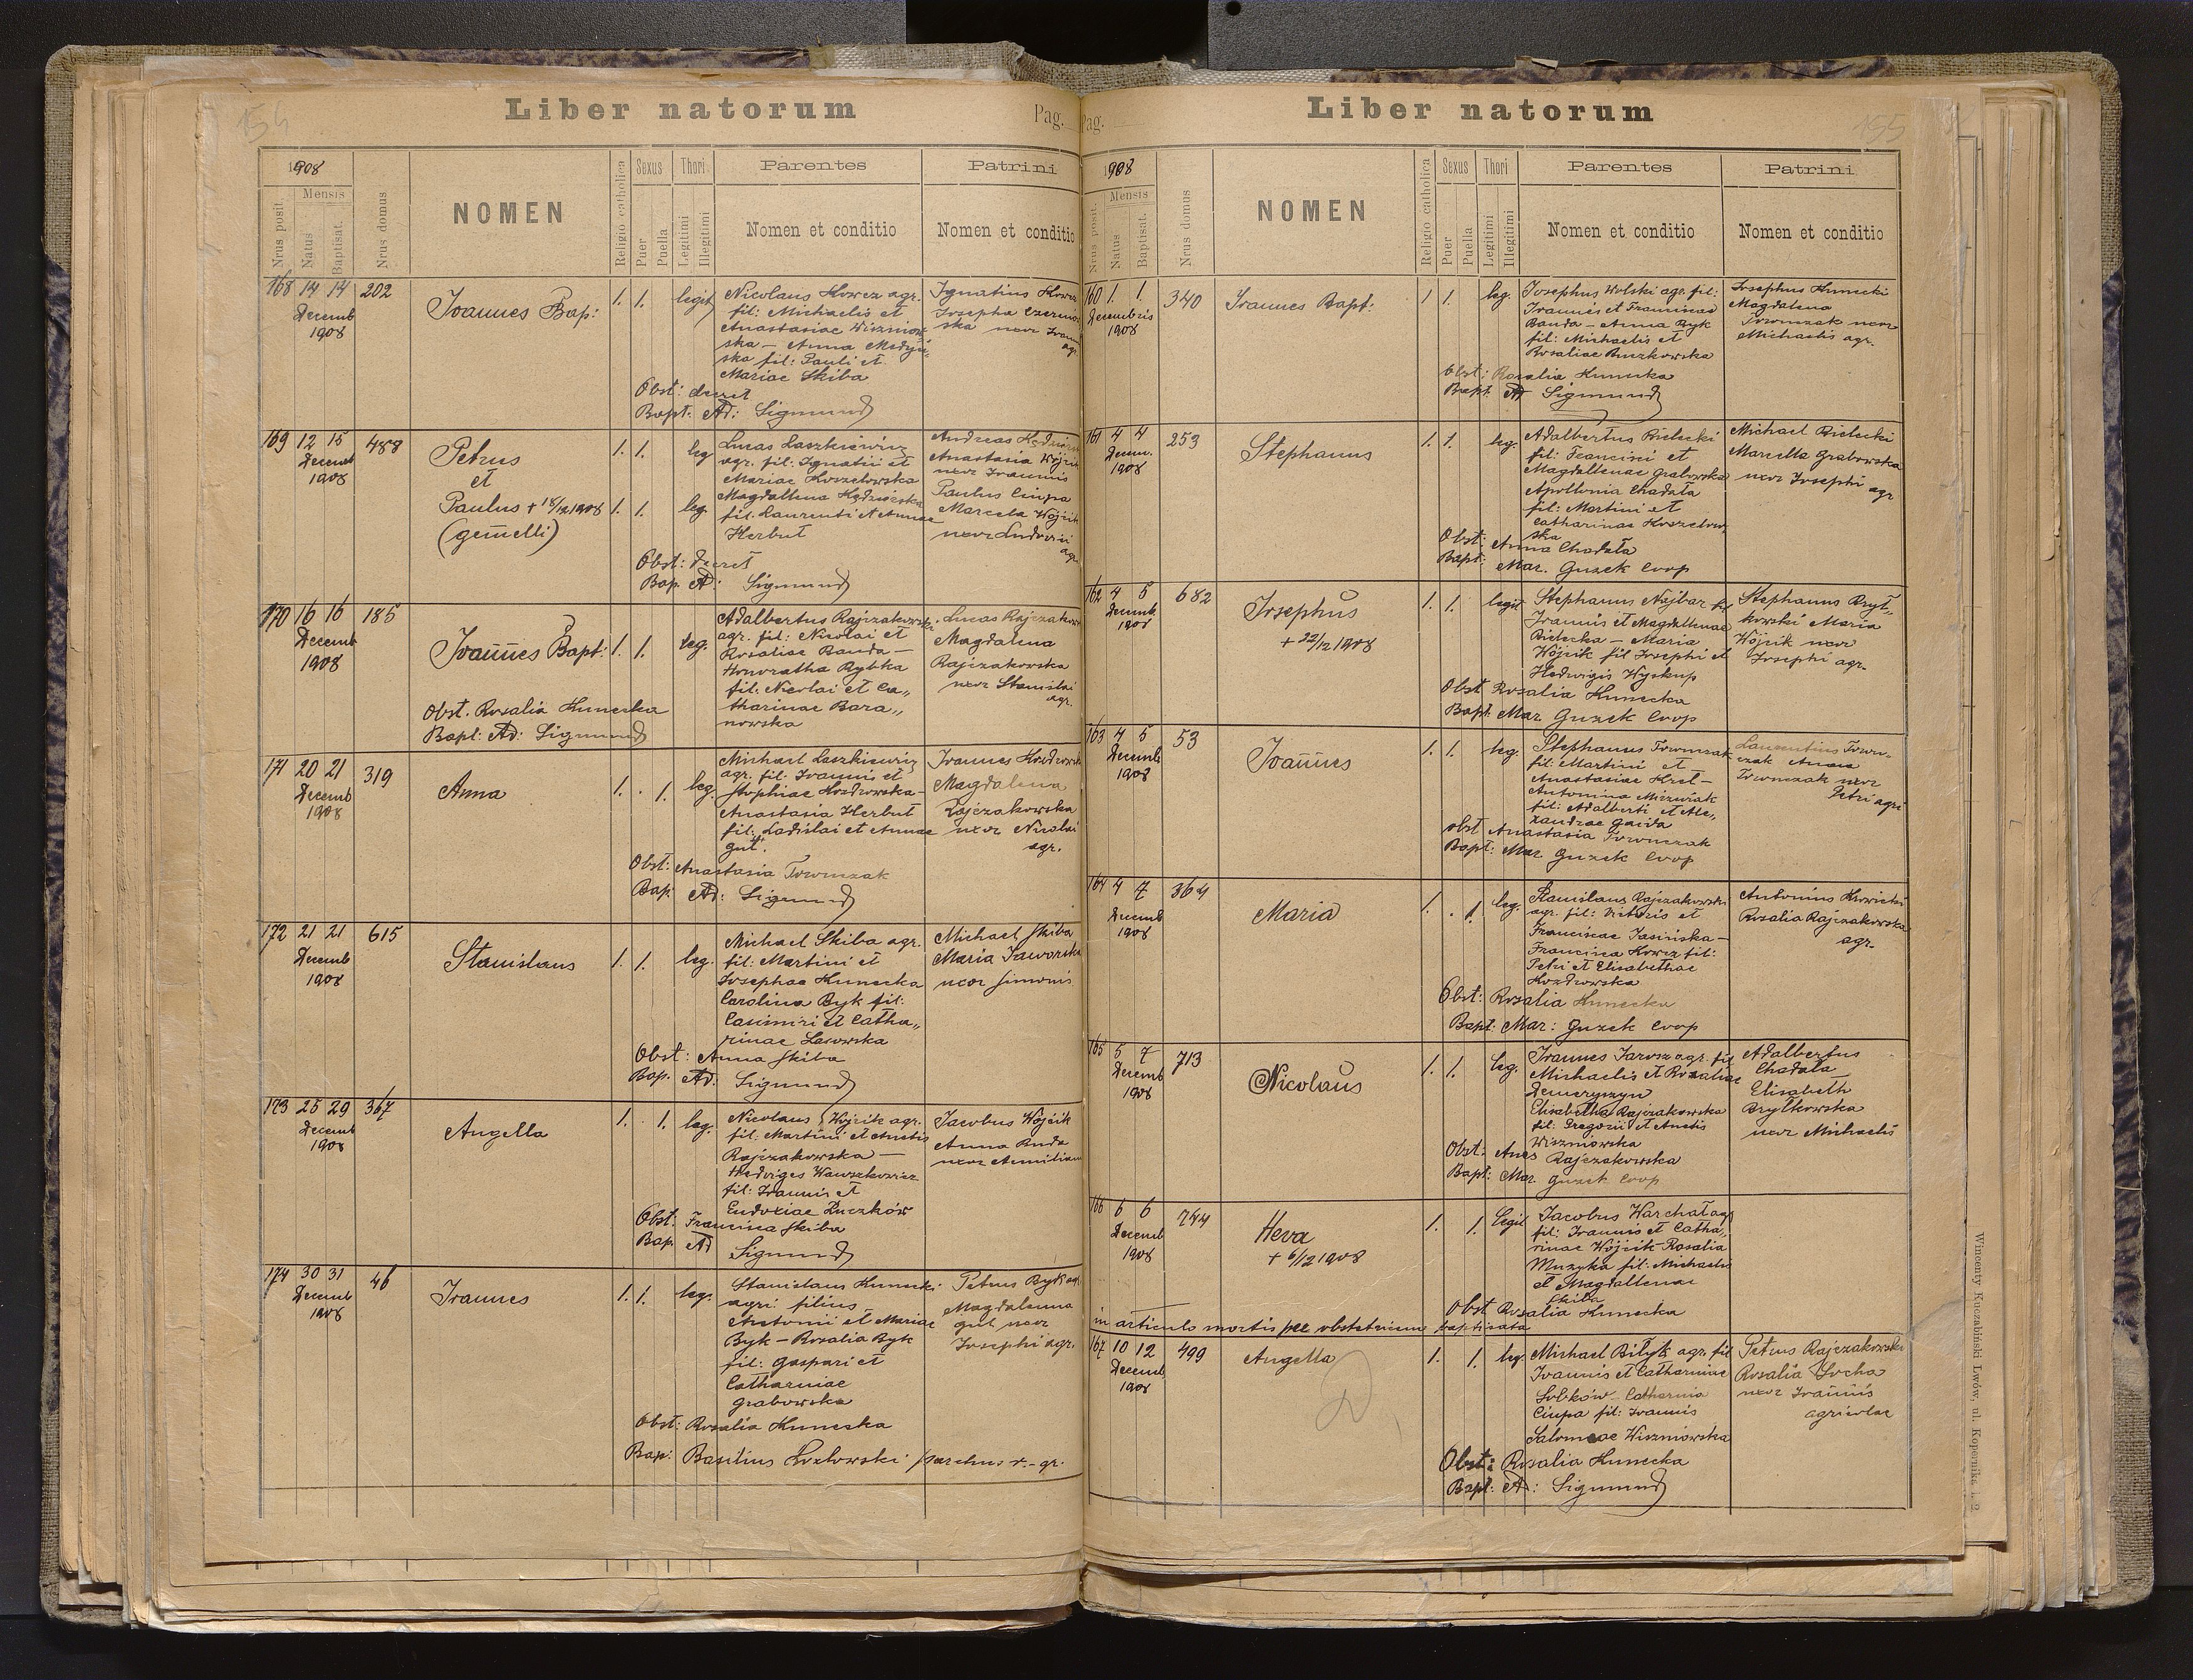 154
Liber natorum
Pag.
1908
Nrus posit.
Mensis
Natus
Baptisat.
Nrus domus
NOMEN
Religio catholica
Sexus
Puer
Puella
Thori
Legitimi
Illegitimi
Parentes
Nomen et conditio
Patrini
Nomen et conditio
168 14 14 202
Decemb
1908
Joannes Bap:
1. 1. legit
Nicolaus Kowcz agr.
fil: Michaelis et
Anastasiae Wiszniow
ska – Anna Medyń„
ska fil: Pauli et
Mariae Skiba
Ignatius Kowcz
Josepha Czerwiń
ska uxor Joan
agr.
Obst: deest
Bapt. Ad: Sigmund
169 12 15 488
Decemb
1908
Petrus
et
Paulus + 18/12 1908
(gemelli)
1. 1. leg
1. 1. leg.
Lucas Laszkiewicz
agr. fil: Ignatii et
Mariae Koszelowska
Magdalena Kędzierska
fil. Laurenti et Annae
Herbut
Andreas
Anastasia Wójcik
uxor Joannis
Paulus Ciupa
Marcela Wójcik
uxor Ludovici
agr.
Obst: deest
Bap. Ad: Sigmund
170 16 16 185
Decemb
1908
Joannes Bapt:
1. 1. leg.
Adalbertus Rajczakowski
agr. fil: Nicolai et
Rosaliae Banda –
Honoratha Rybka
fil: Nicolai et Ca„
tharinae Bara„
nowska
Lucas Rajczakows
Magdalena
Rajczakowska
uxor Stanislai
agr.
Obst. Rosalia Kunecka
Bapt: Ad: Sigmund
171 20 21 319
Decemb
1908
Anna
1. . 1. leg.
Michael Laszkiewicz
agr. fil. Joannis et
Sophiae Kozdrowska –
Anastasia Herbut
fil: Ladislai et Annae
Gut.
Joannes Kozdrowski
Magdalena
Rajczakowska
uxor Nicolai
agr.
Obst: Anastasia Towmczak
Bap: Ad: Sigmund
172 21 21 615
Decemb
1908
Stanislaus
1. 1. leg.
Michael Skiba agr.
fil: Martini et
Josephae Kunecka
Carolina Byk fil:
Casimiri et Catha„
rinae Lasowska
Michael Skiba
Maria Jaworska
uxor Simonis
Obst: Anna Skiba
Bap. Ad. Sigmund
173 25 29 367
Decemb
1908
Angella
1. 1. leg.
Nicolaus Wójcik agr.
fil: Martini et Anetis
Rajczakowska –
Hedviges Wawszkowicz
fil: Joannis et
Eudoxiae Luczków
Jacobus Wójcik
Anna Buda
uxor Aemiliani
Obst: Francisca Skiba
Bap. Ad Sigmund
174 30 31 46
Decemb
1908
Joannes
1. 1. leg.
Stanislaus Kunecki
agri filius
Antonii et Mariae
Byk – Rosalia Byk
fil: Gaspari et
Catharniae
Grabowska
Petrus Byk agr
Magdalenna
Gut uxor
Josephi agr.
Obst: Rosalia Kunecka
Bap: Basilius Kozłowski parchus r.-gr.
155
Liber natorum
Pag.
1908
Nrus posit.
Mensis
Natus
Baptisat.
Nrus domus
NOMEN
Religio catholica
Sexus
Puer
Puella
Thori
Legitimi
Illegitimi
Parentes
Nomen et conditio
Patrini
Nomen et conditio
160 1. 1. 340
Decembris
1908
Joannes Bapt:
1 1. leg.
Josephus Wolski agr. fil:
Joannis et Franciscae
Banda – Anna Byk
fil: Michaelis et
Rosaliae Buczkowska
Josephus Kunecki
Magdalena
Towmczak uxor
Michaelis agr.
Obst: Rosalia Kunecka
Bapt: Ad Sigmund
161 4 4 253
Decem.
1908
Stephanus
1. 1. leg.
Adalbertus Bielecki
fil: Francisci et
Magdalenae Grabowska
Apollonia Chadała
fil: Martini et
Catharinae Koszelow„
ska
Michael Bielecki
Marcella Grabowska
uxor Josephi agr
Obst: Anna Chadała
Bapt: Mar. Guzek Coop
162 4 5 682
Decemb.
1908
Josephus
+ 22/12 1908
1. 1. legit
Stephanus Najbar fil
Joannis et Magdalenae
Bielecka – Maria
Wójcik fil Josephi et
Hedwigis Wyskup
Stephanus Brył„
kowski Maria
Wójcik uxor
Josephi agr.
Obst Rosalia Kunecka
Bapt: Mar Guzek Coop
163 4 5 53
Decemb
1908
Joannes
1. 1. leg.
Stephanus Towmczak
fil: Martini et
Anastasiae Hrel –
Antonina Miczwiak
fil: Adalberti et Ale„
xandrae Gaida
Laurentius Towm-
czak Anna
Towmczak uxor
Petri agri
obst Anastasia Towmczak
Bapt: Mar. Guzek Coop
164 4 7 364
Decemb
1908
Maria
1. . 1. leg.
Stanislaus Rajczakowski
agr. fil: Victoris et
Franciscae Jasińska –
Francisca Kowcz fil:
Petri et Elisabethae
Kozdrowska
Antonius Krowicki
Rosalia Rajczakowska
agr.
Obst: Rosalia Kunecka
Bapt: Mar: Guzek Coop
165 5 7 713
Decemb
1908
Nicolaus
1. 1. leg.
Joannes Jarosz agr. fil
Michaelis et Rosaliae
Demeryszyn
Elisabetha Rajczakowska
fil: Gregorii et Anetis
Wiszniowska
Adalbertus
Chadała
Elisabeth
Bryłkowska
uxor Michaelis
Obst: Anes Rajczakowska
Bapt: Mar. Guzek Coop
166 6 6 744
Decemb
1908
Heva
+ 6/12 1908
1. 1. legit
Jacobus Warchał agr
fil: Joannis et Catha„
rinae Wójcik – Rosalia
Muzyka fil: Michaelis
et Magdallenae
Skiba
Obst Rosalia Kunecka
in articulo mortis per obstetricem baptisata
167 10 12 499
Decemb
1908
Angella
1. 1. leg.
Michael Biłyk agr. fil
Joannis et Catharniae
Sobków – Catharnia
Ciupa fil: Joannis
Salomeae Wiszniowska
Petrus Rajczakowski
Rosalia Socha
uxor Joannis
agricolae
Obst: Rosalia Kunecka
Bapt: Ad: Sigmund
Wincenty Kuczabiński Lwów, ul. Kopernika l. 2.